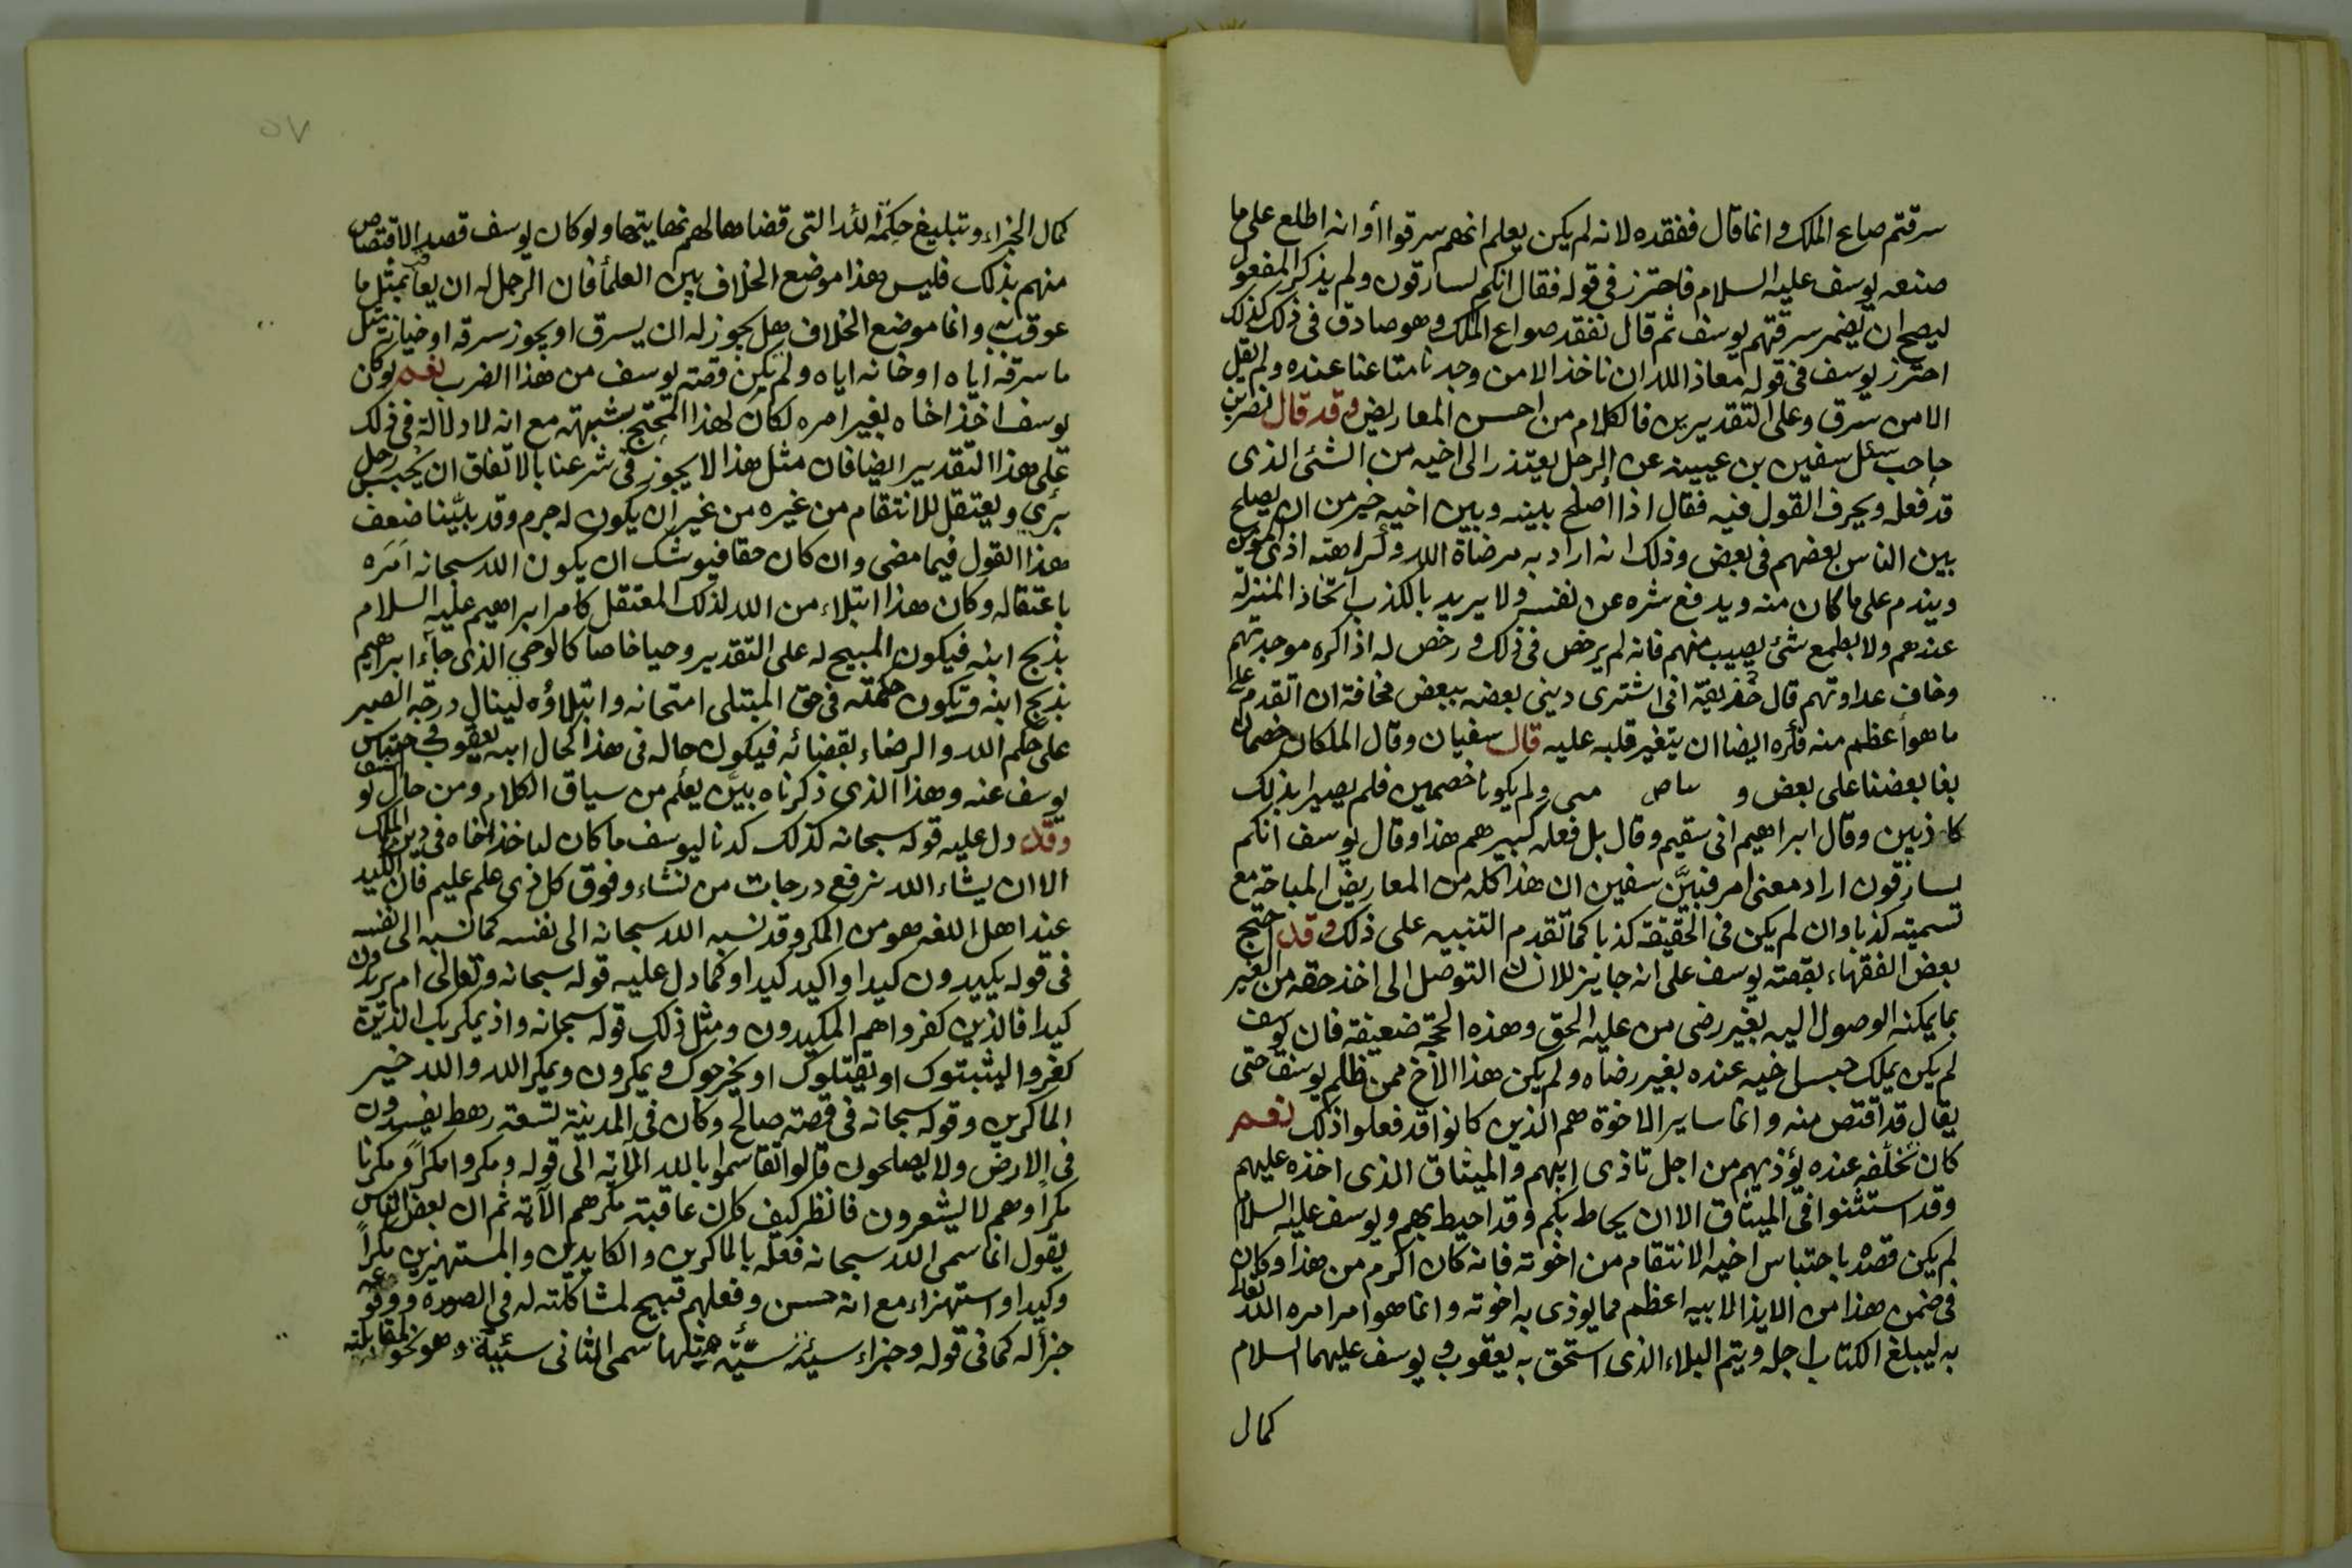 سرقتم صاع الملك وانما قال فنفقده لانه لم يكن يعلم انهم سرقوا أو انه اطلع على ما
صنعه يوسف عليه السلام فاحترز في قوله فقال انكم لسارقون ولم يذكر المفعول
ليصح ان يضمر سرقتهم يوسف ثم قال نفقد صواع الملك وهو صادق في ذلك كذلك
احترز يوسف في قوله معاذ الله ان ناخذ الا من وجدنا متاعنا عنده ولم يقل
الا من سرق وعلى التقديرين فالكلام من احسن المعاريض وقد قال نصر بن
حاجب سئل سفين بن عيينه عن الرجل يعتذر الى اخيه من الشئ الذى
قد فعله ويحرف القول فيه فقال اذا اصلح بينه وبين اخيه خير من ان يصلح
بين الناس بعضهم في بعض وذلك انه اراد به مرضاة الله وكراهته اذى مؤمن
ويندم على ما كان منه ويدفع شره عن نفسه ولا يريد بالكذب اتخاذ المنزلة
عندهم ولا بطمع شئ يصيب منهم فانه لم يرخص في ذلك ورخص له اذا كره موجدتهم
وخاف عداوتهم قال حذيفة انى اشترى دينى بعضه ببعض مخافة ان اتقدم على
ما هو أعظم منه فكره ايضا ان يتغير قلبه عليه قال سفيان وقال الملكان خصمان
بغا بعضنا على بعض و ولم يكونا خصمين فلم يصيرا بذلك
كاذبين وقال ابراهيم انى سقيم وقال بل فعله كبيرهم هذا وقال يوسف انكم
لسارقون اراد معنى امر فبيَّن سفين ان هذا كله من المعاريض المباحة مع
تسميته كذبا وان لم يكن في الحقيقة كذبا كما تقدم التنبيه على ذلك وقد احتج
بعض الفقهاء بقصته يوسف على انه جايز للانسان التوصل الى اخذ حقه من الغير
بما يمكنه الوصول اليه بغير رضى من عليه الحق وهذه الحجة ضعيفة فان يوسف
لم يكن يملك حبس اخيه عنده بغير رضاه ولم يكن هذا الاخ ممن ظلم يوسف حتى
يقال قد اقتص منه وانما ساير الاخوة هم الذين كانوا قد فعلوا ذلك نعم
كان تخلفه عنده يؤذيهم من اجل تاذى ابيهم والميثاق الذى اخذه عليهم
وقد استثنوا في الميثاق الا ان يحاط بكم وقد احيط بهم ويوسف عليه السلام
لم يكن قصده باحتباس اخيه الانتقام من اخوته فانه كان اكرم من هذا وكان
في ضمن هذا من الايذا لابيه اعظم مما يوذى به اخوته وانما هو امر امره الله تعالى
به ليبلغ الكتاب اجله ويتم البلاء الذى استحق به يعقوب ويوسف عليهما السلام
كمال
كمال الجزاء وتبليغ حكمة الله التى قضاها لهم نهايتها ولو كان يوسف قصد الاقتصاص
منهم بذلك فليس هذا موضع الخلاف بين العلما فان الرجل له ان يعاقب بمثل ما
عوقب به وانما موضع الخلاف هل يجوز له ان يسرق او يجوز سرقه او خيانه مثل
ما سرقه اياه او خانه اياه ولم يكن قصته يوسف من هذا الضرب نعم لو كان
يوسف اخذ اخاه بغير امره لكان لهذا المحتج شبهته مع انه لا دلالة في ذلك
على هذا التقدير ايضا فان مثل هذا لا يجوز في شرعنا بالاتفاق ان يحبس رجل
برئ ويعتقل للانتقام من غيره من غير ان يكون له جرم وقد بيَّنا ضعف
هذا القول فيما مضى وان كان حقا فيوشك ان يكون الله سبحانه امره
باعتقاله وكان هذا ابتلاء من الله لذلك المعتقل كامر ابراهيم عليه السلام
بذبح ابنه فيكون المبيح له على التقدير وحيا خاصا كالوحى الذى جاء ابراهيم
بذبح ابنه وتكون حكمته في حق المبتلى امتحانه وابتلاؤه لينال درجة الصبر
على حكم الله والرضاء بقضائه فيكون حاله في هذا كحال ابيه يعقوب في احتباس
يوسف عنه وهذا الذى ذكرناه بيّن يعلم من سياق الكلام ومن حال يوسف
وقد دل عليه قوله سبحانه كذلك كدنا ليوسف ما كان لياخذ اخاه في دين الملك
الا ان يشاء الله نرفع درجات من نشاء وفوق كل ذى علم عليم فان الكيد
عند اهل اللغه هو من المكر وقد نسبه الله سبحانه الى نفسه كما نسبه الى نفسه
في قوله يكيدون كيدا واكيد كيدا وكما دل عليه قوله سبحانه وتعالى ام يريدون
كيدا فالذين كفروا هم المكيدون ومثل ذلك قوله سبحانه واذ يمكر بك الذين
كفروا ليثبتوك او يقتلوك او يخرجوك ويمكرون ويمكر الله والله خير
الماكرين وقوله سبحانه في قصة صالح وكان في المدينة تسعة رهط يفسدون
في الارض ولا يصلحون قالوا تقاسموا بالله الآية الى قوله ومكروا مكراً ومكرنا
مكراً وهم لا يشعرون فانظر كيف كان عاقبة مكرهم الآية ثم ان بعض الناس
يقول انما سمى الله سبحانه فعله بالماكرين والكايدين والمستهزين مكراً
وكيدا واستهزاء مع انه حسن وفعلهم قبيح لمشاكلته له في الصورة ووقوعه
جزأ له كما في قوله وجزاء سيئة سيّئة مثلها سمى الثانى سيئة وهو لمقابلته